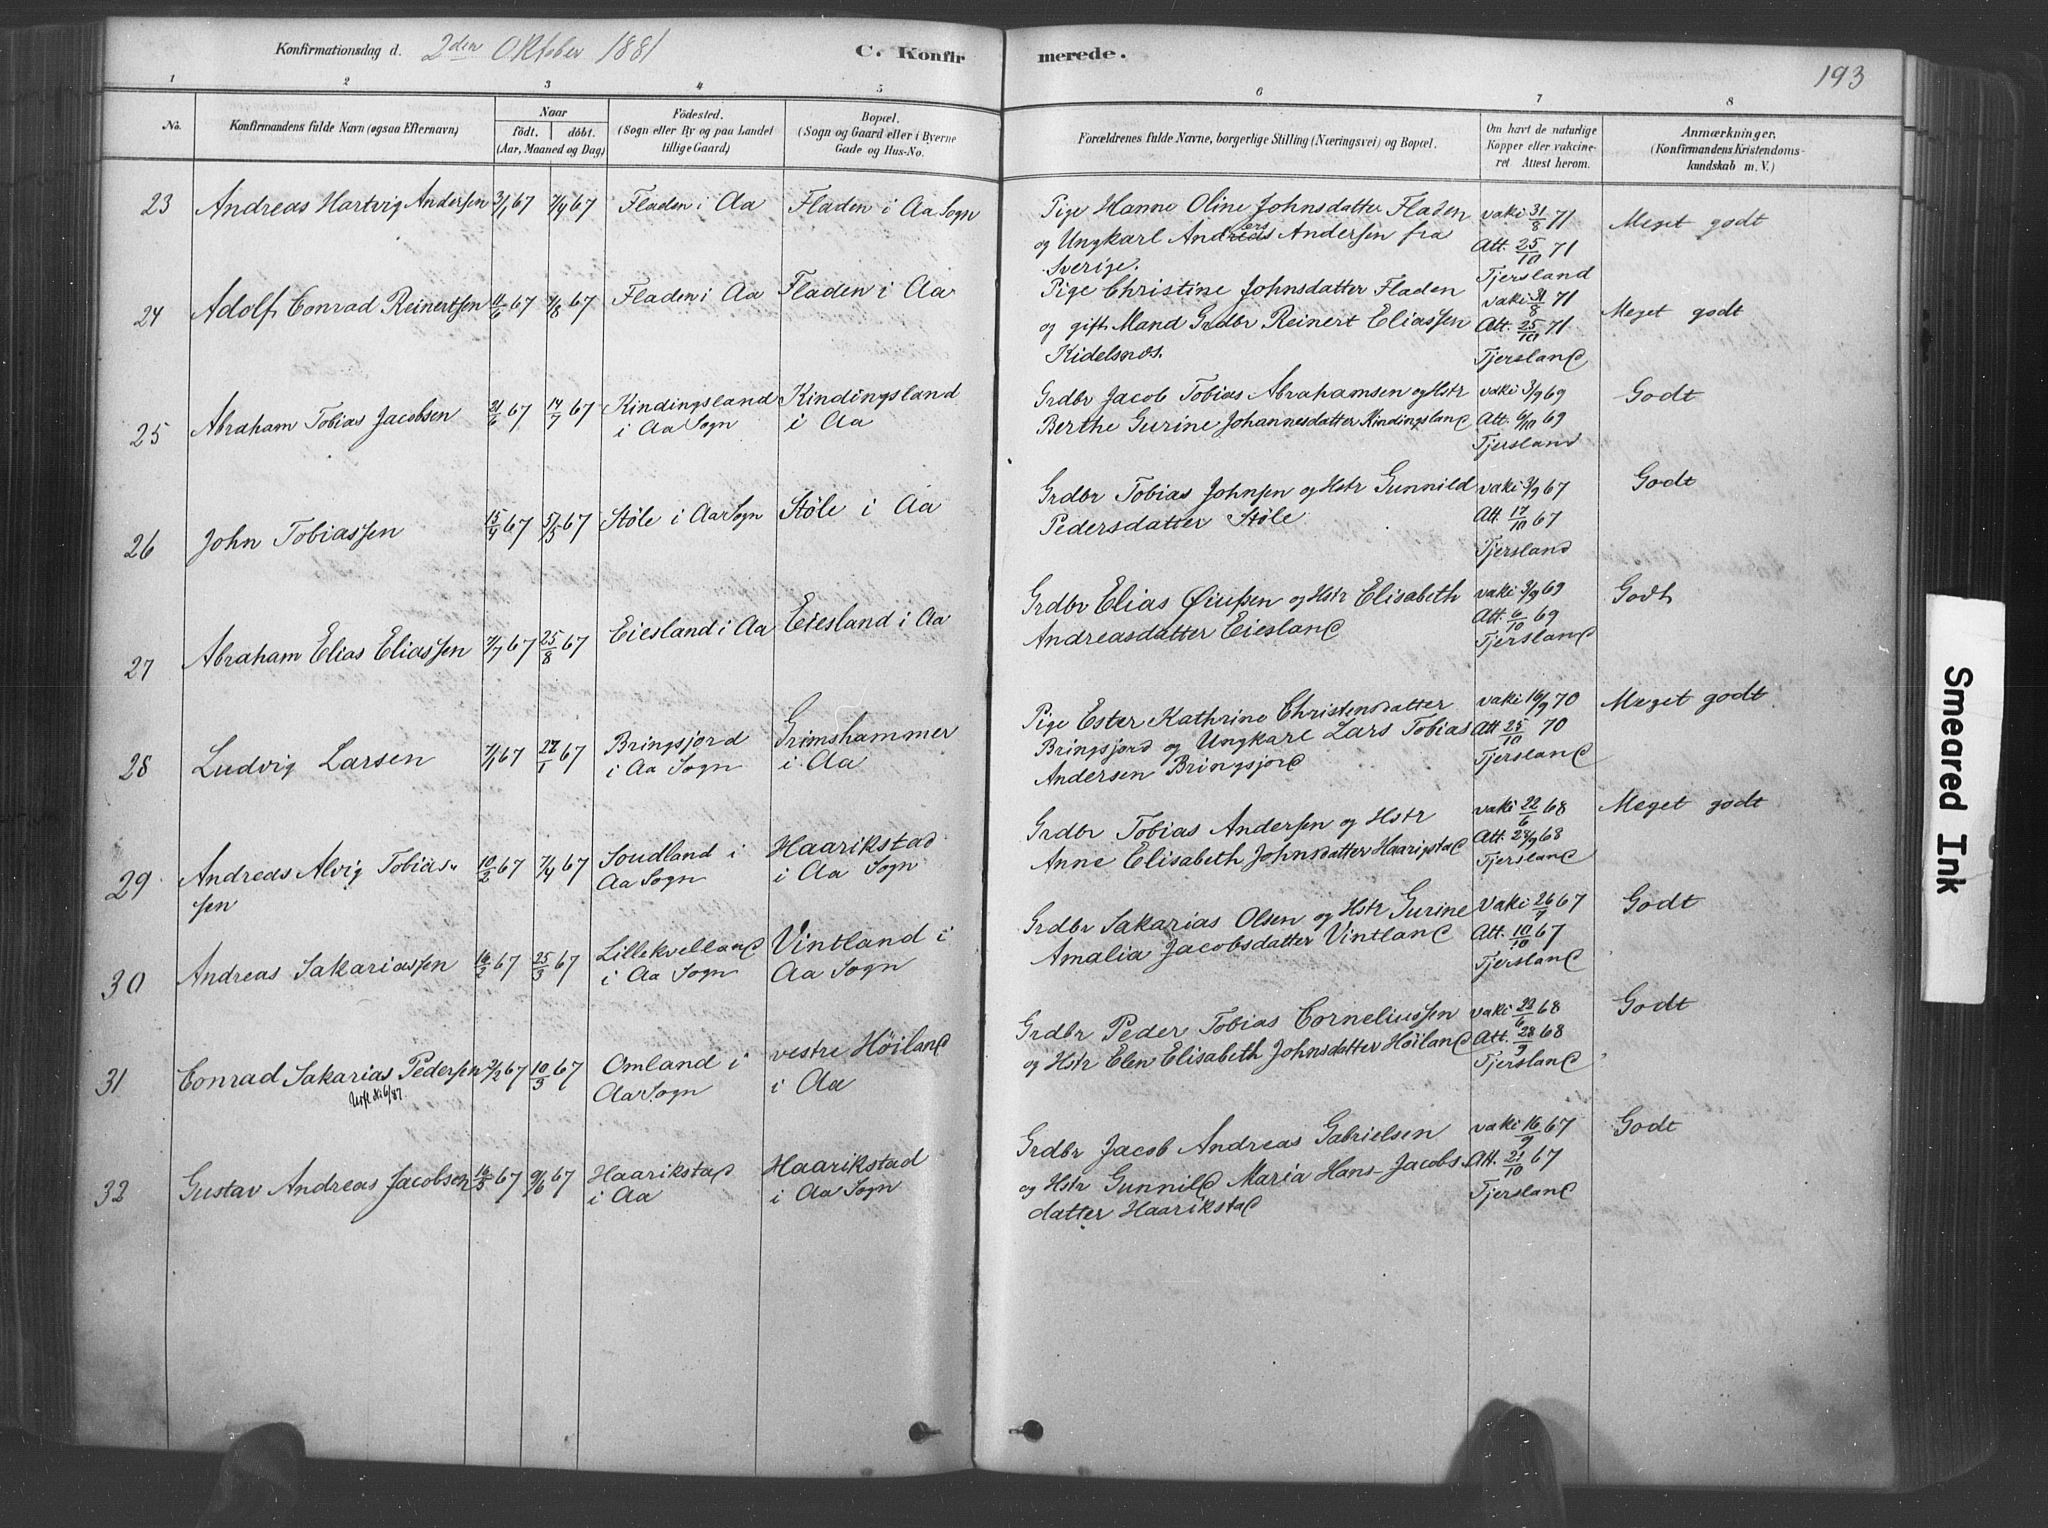 Konfirmationsdag d. 2den Oktober 1881 C. Konfir merede. 193
1 2 3 4 5 6 7 8
No. Konfirmandens fulde Navn (ogsaa Efternavn) Naar født. døbt. (Aar, Maaned og Dag) Fødested. (Sogn eller By og paa Landet tillige Gaard.) Bopæl. (Sogn og Gaard eller i Byerne Gade og Hus-No. Forældrenes fulde Navne, borgerlige Stilling (Næringsvei) og Bopæl. Om havt de naturlige Kopper eller vakcineret Attest herom. Anmærkninger. (Konfirmandens Kristendomskundskab m. V.)
23 Andreas Hartvig Andersen 3/1 67 7/4 67 Fladen i Aa Fladen i Aa Sogn Pige Hanne Oline Johnsdatter Fladen vaki 31/8 71 Meget godt
og Ungkarl Anders Andersen fra Att. 25/10 71
Sverige. Tjersland
24 Adolf Conrad Reinertsen 11/6 67 7/8 67 Fladen i Aa Fladen i Aa Pige Christine Johnsdatter Fladen vaki 31/8 71 Meget godt
og gift Mand Grdbr Reinert Eliassen Att. 25/10 71
Kidelsnæs. Tjersland
25 Abraham Tobias Jacobsen 21/6 67 14/7 67 Kindingsland Kindingsland Grdbr Jacob Tobias Abrahamsen og Hstr vaki 3/9 69 Godt
i Aa Sogn i Aa Berthe Gurine Johannesdatter Kindingsland Att. 6/10 69
Tjersland
26 John Tobiassen 15/4 67 5/5 67 Støle i Aa Sogn Støle i Aa Grdbr Tobias Johnsen og Hstr Gunnild vaki 3/9 67 Godt
Pedersdatter Støle Att. 17/10 67
Tjersland
27 Abraham Elias Eliassen 7/7 67 25/8 67 Eiesland i Aa Eiesland i Aa Grdbr Elias Øiußen og Hstr Elisabeth vaki 3/9 69 Godt
Andreasdatter Eiesland Att. 6/10 69
Tjersland
28 Ludvig Larsen 7/1 67 27/1 67 Bringsjord Grimshammer Pige Ester Kathrine Christensdatter vaki 16/9 70 Meget godt
i Aa Sogn i Aa Bringsjord og Ungkarl Lars Tobias Att 25/10 70
Andersen Bringsjord Tjersland
29 Andreas Alvig Tobias- 10/2 67 7/4 67 Soudland i Haarikstad Grdbr Tobias Andersen og Hstr vaki 22/6 68 Meget godt
sen Aa Sogn i Aa Sogn Anne Elisabeth Johnsdatter Haarigstad Att. 28/9 68
Tjersland
30 Andreas Sakariassen 16/2 67 25/3 67 Lillekvelland Vintland i Grdbr Sakarias Olsen og Hstr Gurine Vaki 26/7 67 Godt
i Aa Sogn Aa Sogn Amalia Jacobsdatter Vintland Att. 10/10 67
Tjersland
31 Conrad Sakarias Pedersen 2/2 67 10/3 67 Omland i vestre Høiland Grdbr Peder Tobias Corneliussen vaki 23/6 68 Godt
Aa Sogn i Aa og Hstr Elen Elisabeth Johnsdatter Høiland Att. 28/9 68
Tjersland
32 Gustav Andreas Jacobsen 16/5 67 9/6 67 Haarikstad Haarikstad Grdbr Jacob Andreas Gabrielsen vaki 16/9 67 Godt
i Aa i Aa Sogn og Hstr Gunnild Maria Hans-Jacobs- Att. 21/10 67
datter Haarikstad Tjersland
Smeared Ink